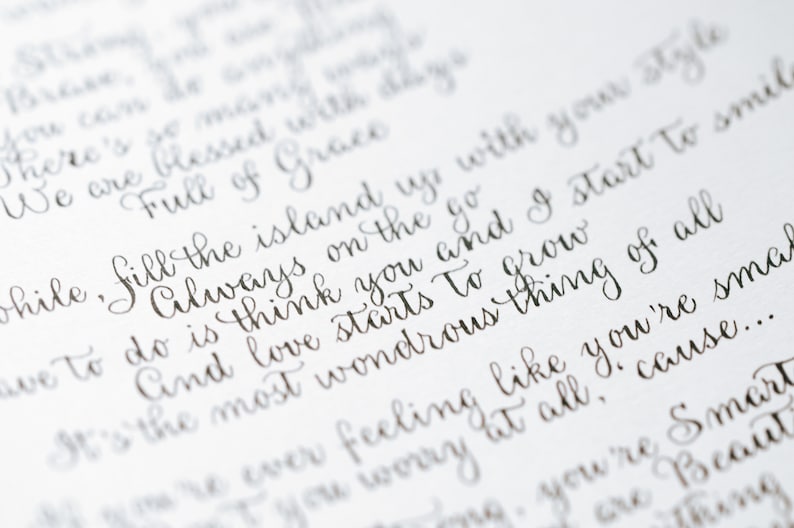 Strong, you
Brave, you are
You can do anything
There's so many ways
We are blessed with days
Full of Grace
while, fill the island up with your style
Always on the go
ave to do is think you and I start to smile
And love starts to grow
It's the most wondrous thing of all
you're ever feeling like you're smal
you worry at all, 'cause...
you're Smart
are Beauti
thing